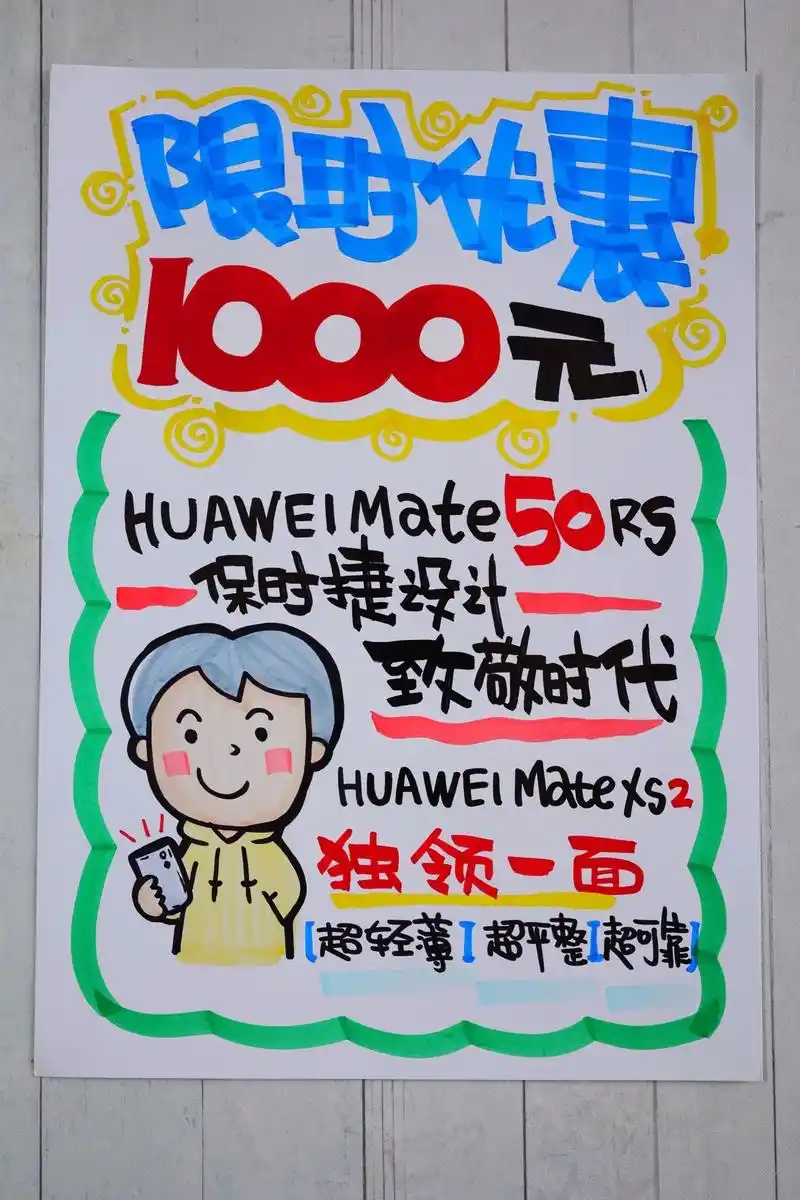 限时优惠
1000元
HUAWEI Mate 50 RS
保时捷设计
致敬时代
HUAWEI Mate Xs2
独领一面
[超轻薄][超平整][超可靠]